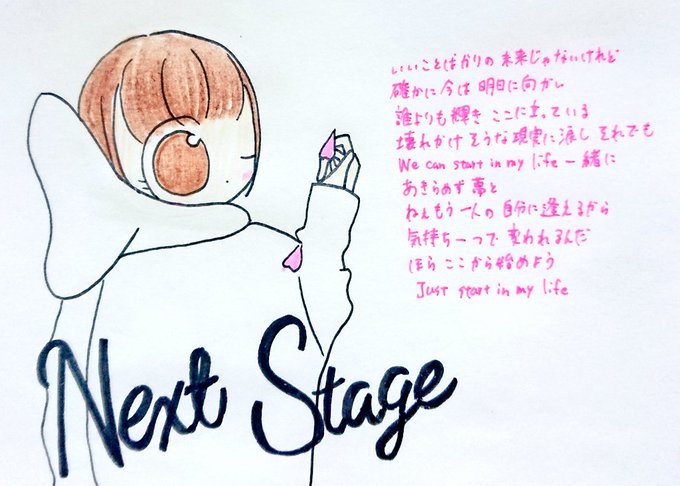 いいことばかりの未来じゃないけれど
確かに今は明日に向かい
誰よりも輝きここに立っている
壊れかけそうな現実に涙しそれでも
We can start in my life 一緒に
あきらめず夢と
ねえもう一人の自分に逢えるから
気持ち一つで変われるんだ
ほらここから始めよう
Just start in my life
Next Stage